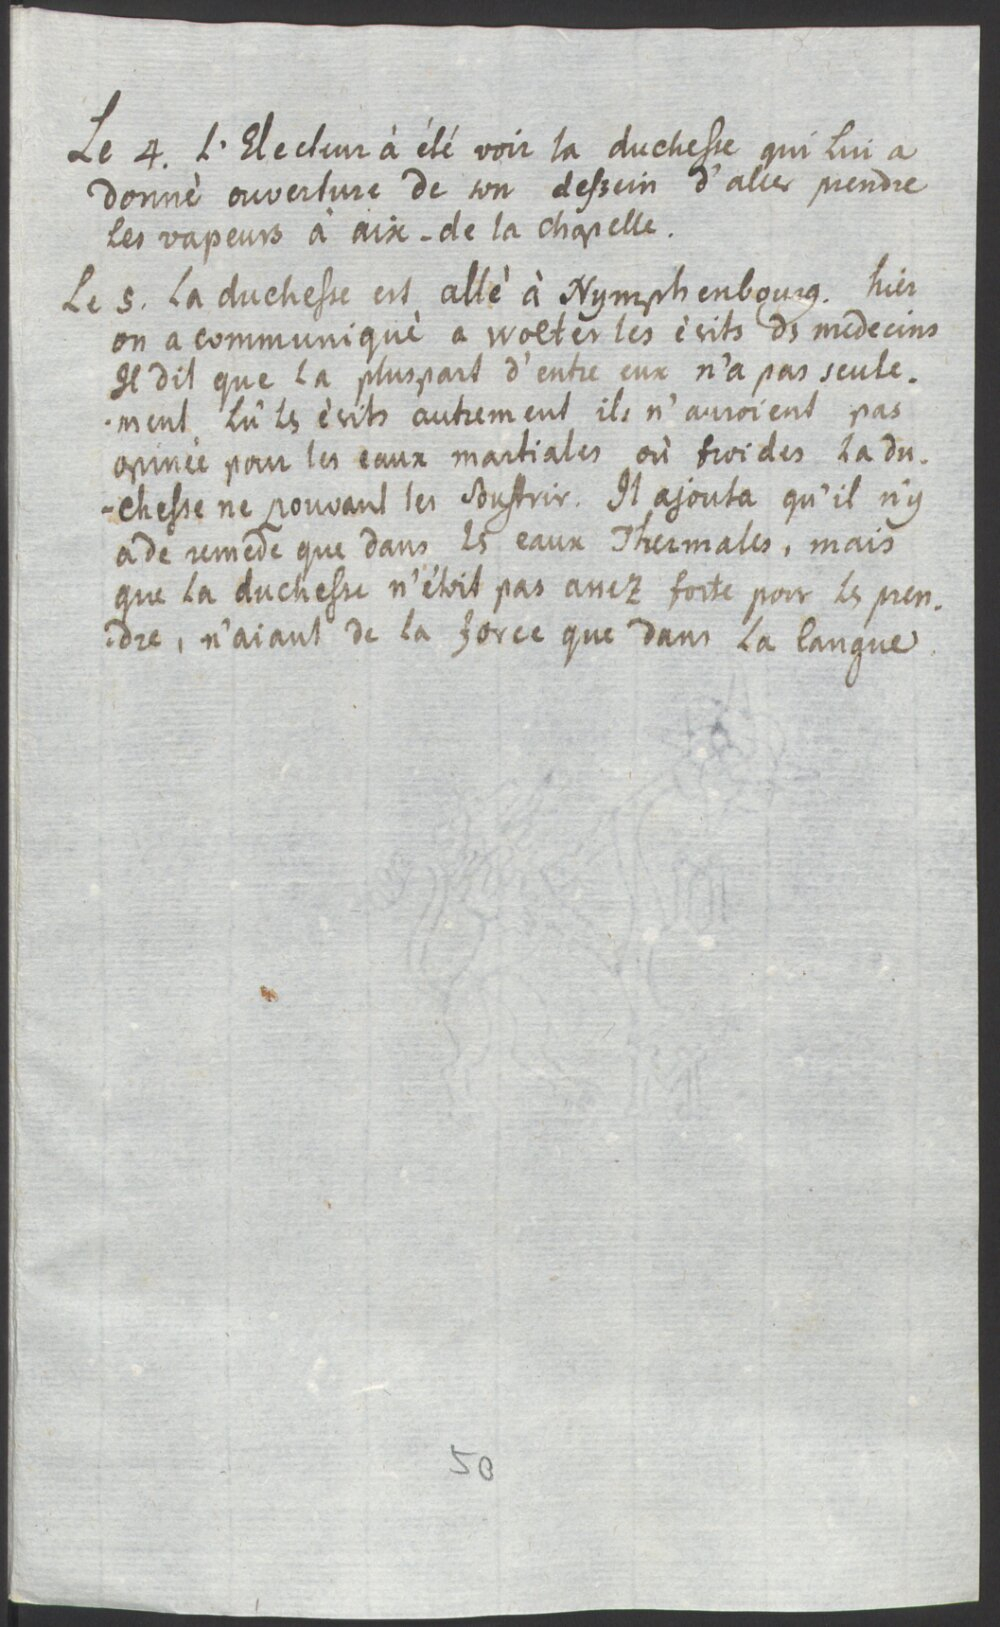 Le 4. L'Electeur à été voir la duchesse qui Lui a
donnè ouverture de son dessein d'aller prendre
Les vapeurs à aix-de la chapelle.
Le 5. La duchesse est allè à Nymphenbourg. hier
on a communiquè a wolter les ècrits ds medecins
Il dit que La pluspart d'entre eux n'a pas seule-
-ment Lû ls ècrits autrement ils n'auroient pas
opinèe pour les eaux martiales où froides La du-
-chesse ne pouvant les souffrir. Il ajouta qu'il n'y
a de remede que dans ls eaux Thermales, mais
que La duchesse n'étoit pas assez forte pour ls pren-
-dre, n'aiant de La force que dans La langue.
50